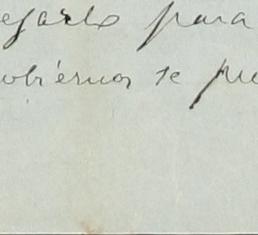 egarlo para
obiernos te pu